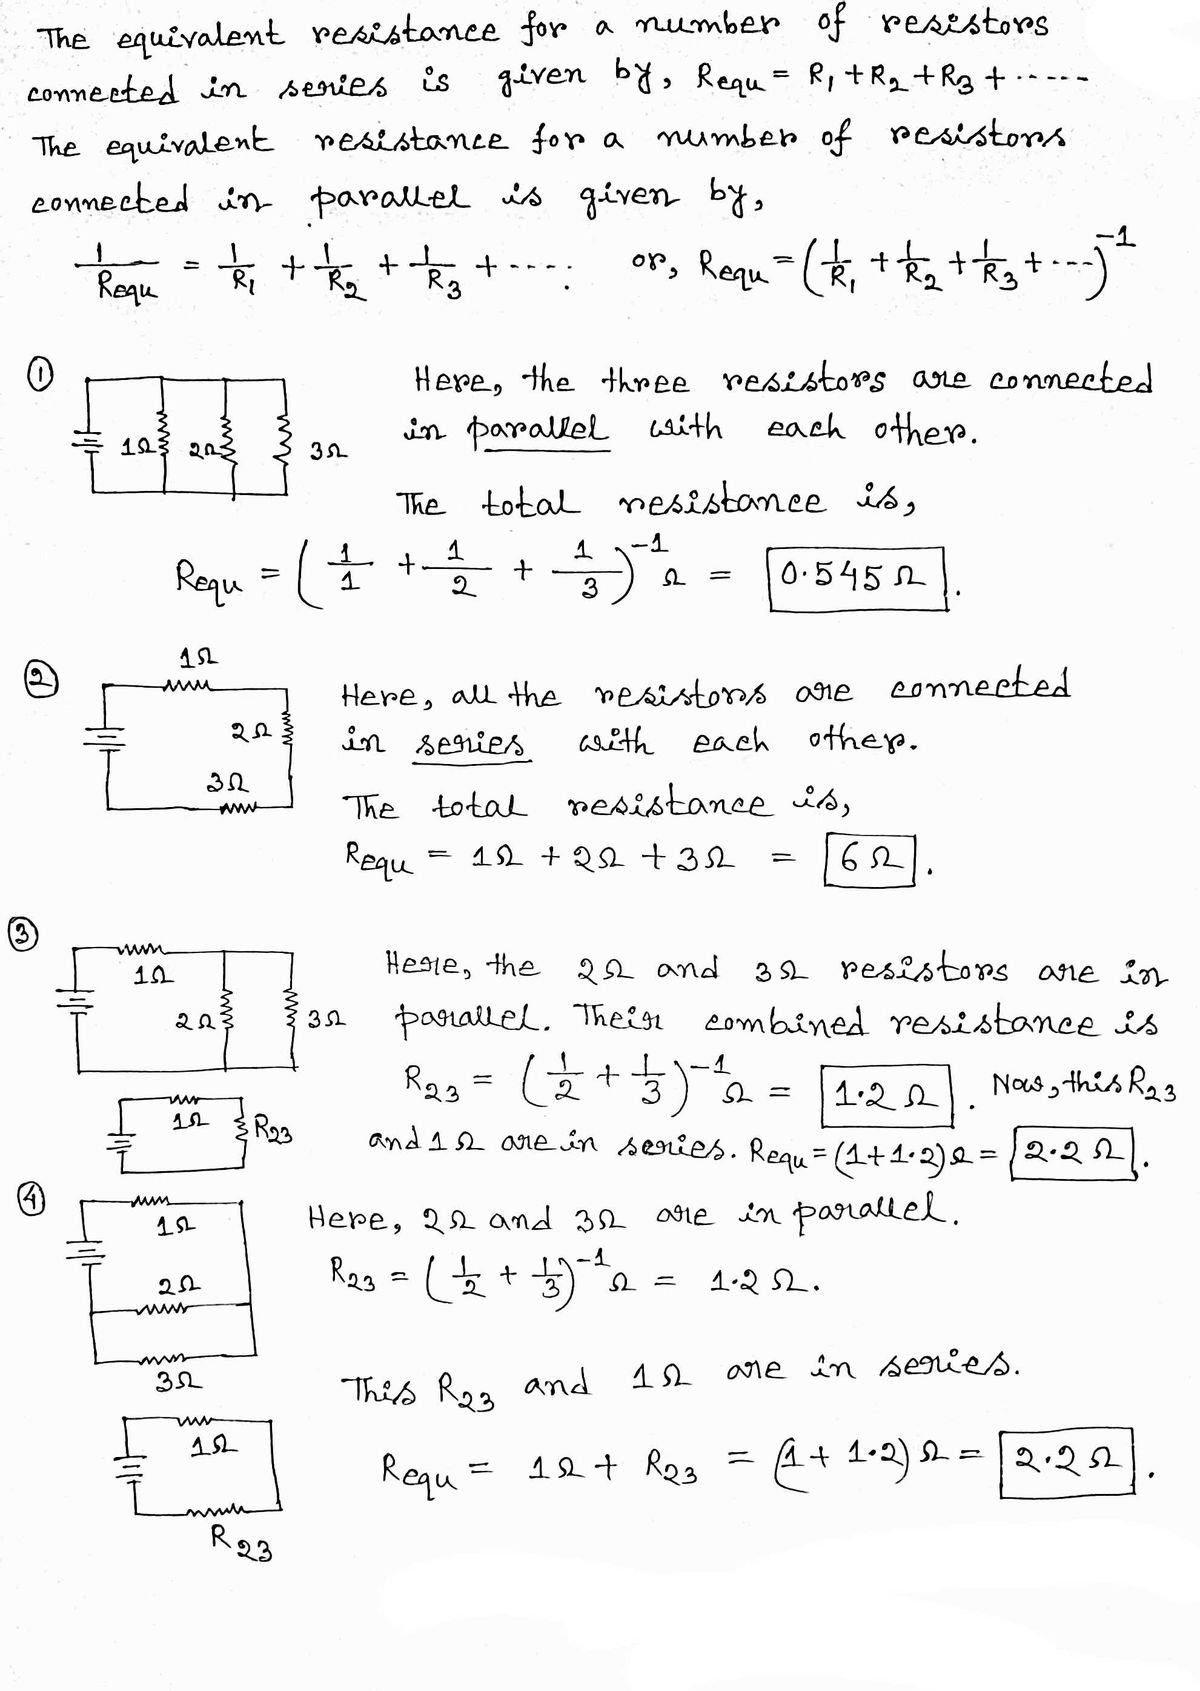 The equivalent resistance for a number of resistors
connected in series is given by, Requ = R₁ + R₂ + R₃ + ·····
The equivalent resistance for a number of resistors
connected in parallel is given by,
1/Requ = 1/R₁ + 1/R₂ + 1/R₃ + ····. or, Requ = (1/R₁ + 1/R₂ + 1/R₃ + ···)⁻¹
①
1Ω 2Ω 3Ω
Here, the three resistors are connected
in parallel with each other.
The total resistance is,
Requ = (1/1 + 1/2 + 1/3)⁻¹ Ω = 0.545 Ω.
②
1Ω
2Ω
3Ω
Here, all the resistors are connected
in series with each other.
The total resistance is,
Requ = 1Ω + 2Ω + 3Ω = 6Ω.
③
1Ω
2Ω 3Ω
Here, the 2Ω and 3Ω resistors are in
parallel. Their combined resistance is
R₂₃ = (1/2 + 1/3)⁻¹ Ω = 1.2 Ω. Now, this R₂₃
1Ω R₂₃
and 1Ω are in series. Requ = (1+1.2)Ω = 2.2 Ω.
④
1Ω
2Ω
3Ω
Here, 2Ω and 3Ω are in parallel.
R₂₃ = (1/2 + 1/3)⁻¹ Ω = 1.2 Ω.
This R₂₃ and 1Ω are in series.
1Ω
R₂₃
Requ = 1Ω + R₂₃ = (1 + 1.2) Ω = 2.2Ω.